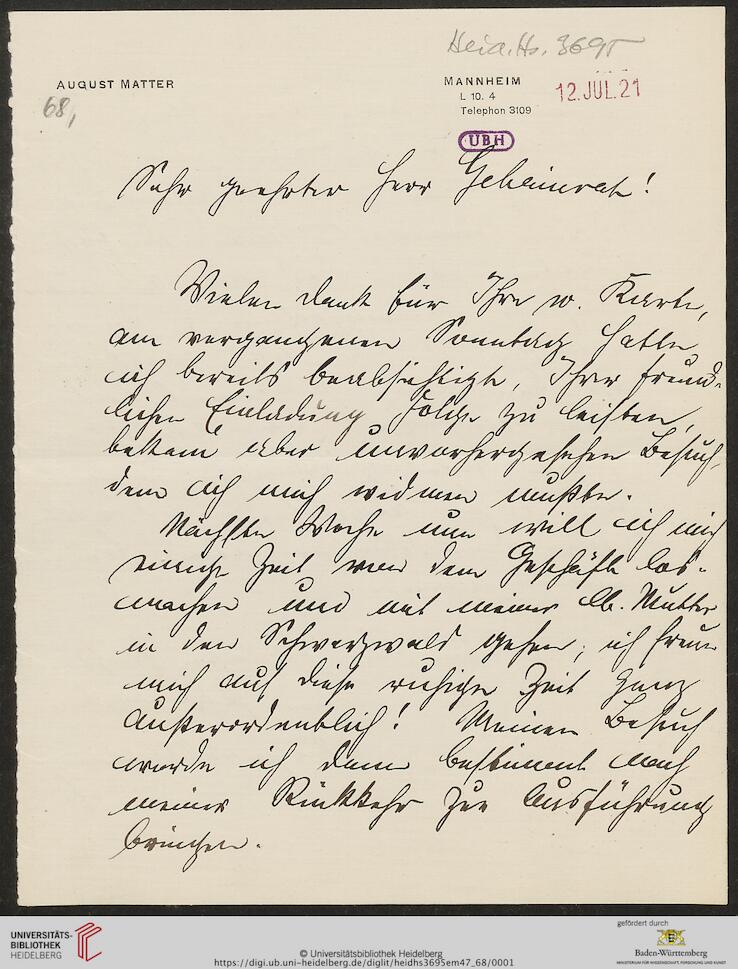 Heid. Hs. 3695
AUGUST MATTER
MANNHEIM
12. JUL. 21
68,
L 10. 4
Telephon 3109
UBH
Sehr geehrter Herr Geheimrat!
Vielen Dank für Ihre w. Karte,
am vergangenen Sonntag hatte
ich bereits beabsichtigt, Ihrer freund-
lichen Einladung Folge zu leisten,
bekam aber unvorhergesehen Besuch,
dem ich mich widmen mußte.
Nächste Woche nun will ich mich
einige Zeit von dem Geschäfte los-
machen und mit meiner lb. Mutter
in den Schwarzwald gehen; ich freue
mich auf diese ruhige Zeit ganz
außerordentlich! Meinen Besuch
werde ich dann bestimmt nach
meiner Rückkehr zur Ausführung
bringen.
UNIVERSITÄTS-
BIBLIOTHEK
HEIDELBERG
© Universitätsbibliothek Heidelberg
https://digi.ub.uni-heidelberg.de/diglit/heidhs3695em47_68/0001
gefördert durch
Baden-Württemberg
MINISTERIUM FÜR WISSENSCHAFT, FORSCHUNG UND KUNST